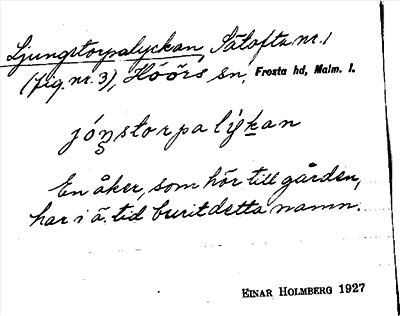 Ljungstorpalyckan, Sätofta nr. 1
(fig. nr. 3), Höörs sn, Frosta hd, Malm. l.
jóŋstorpalykan
En åker, som hör till gården,
har i ä. tid burit detta namn.
EINAR HOLMBERG 1927